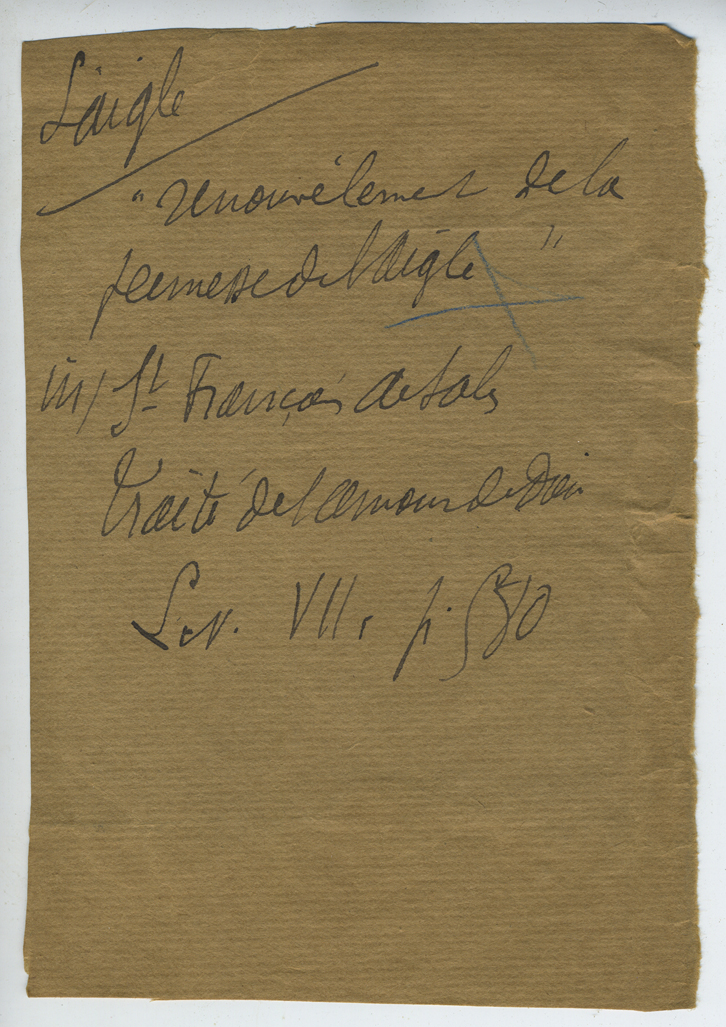 L'aigle
"renouvélement de la
jeunesse de l'aigle"
in/ St François de Sales
Traité de l'amour de Dieu
Liv. VII. p.